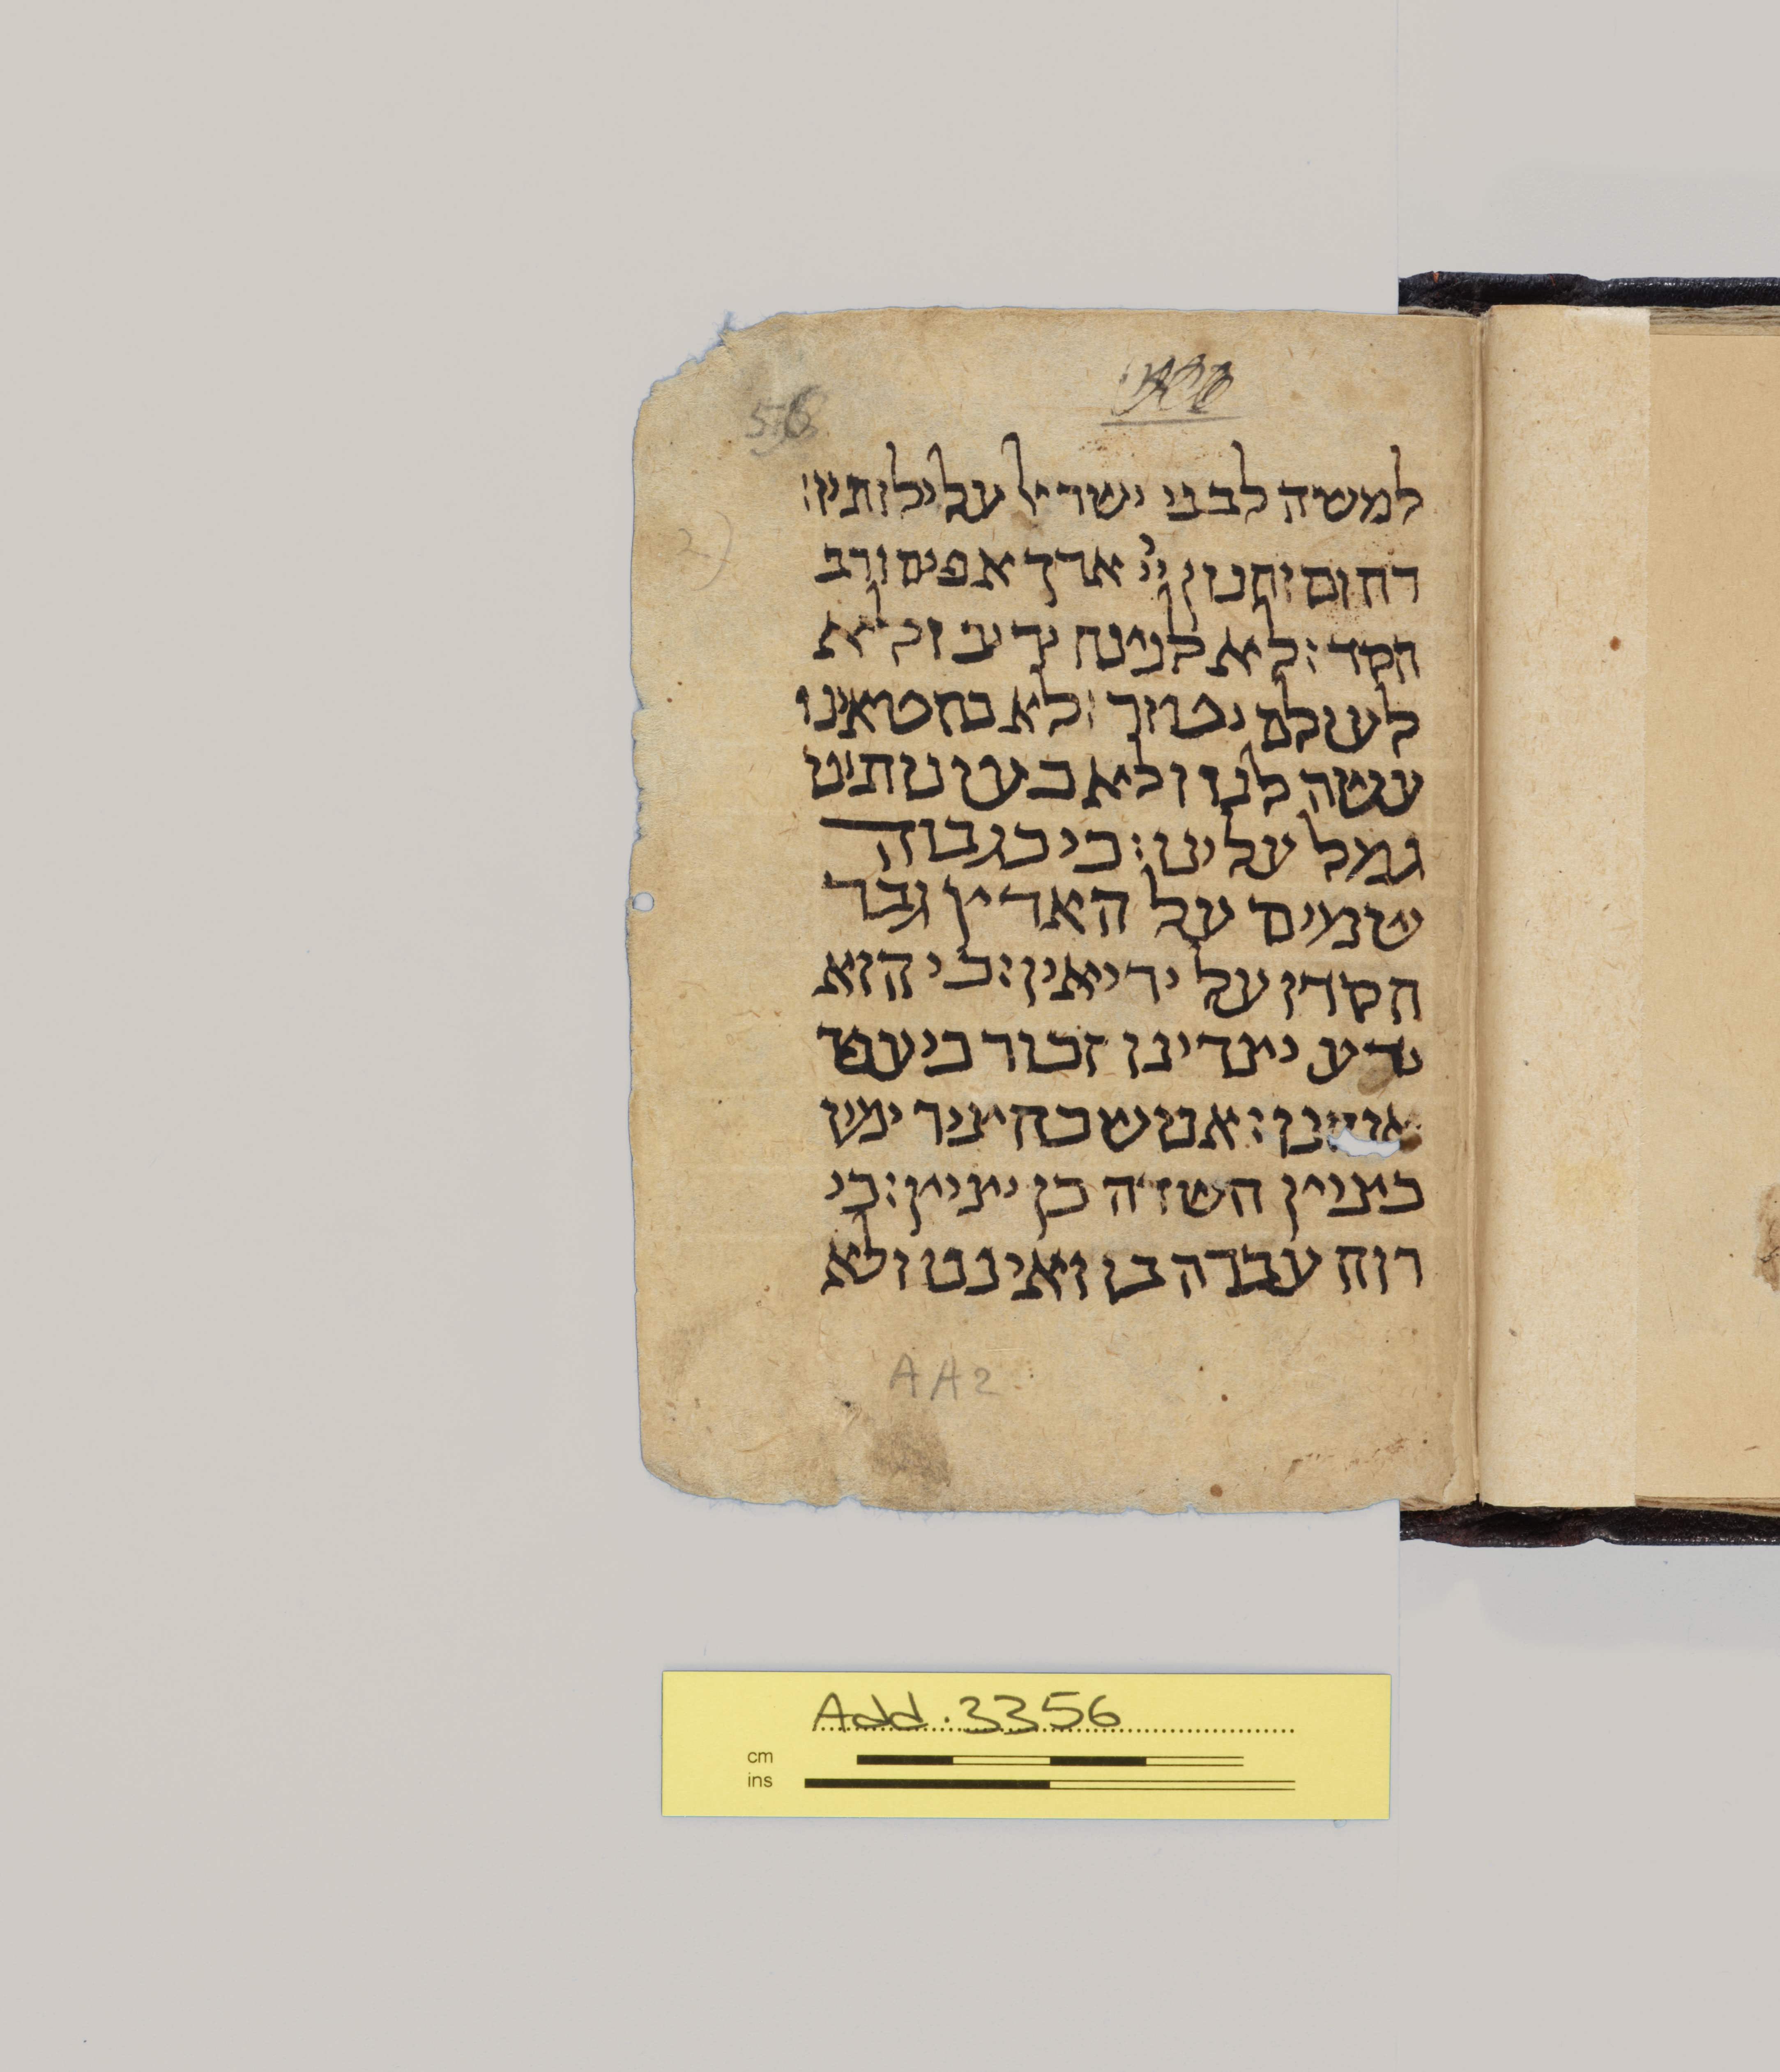 56
למשה לבני ישריל עלילותיו:
2)
רחום וחנון ייי ארך אפים ורב
חסד: לא לניצח יריב ולא
לעולם יטור: לא כחטאינו
עשה לנו ולא כעונתינו
גמל עלינו: כי כגבוה
שמים על הארץ גבר
חסדו על יריאיו: כי הוא
ידע יצרינו זכור כי עפר
אנוש כחציר ימיו
כציץ השדה כן יציץ: כי
רוח עברה בו ואיננו ולא
AA2
Add. 3356
cm
ins